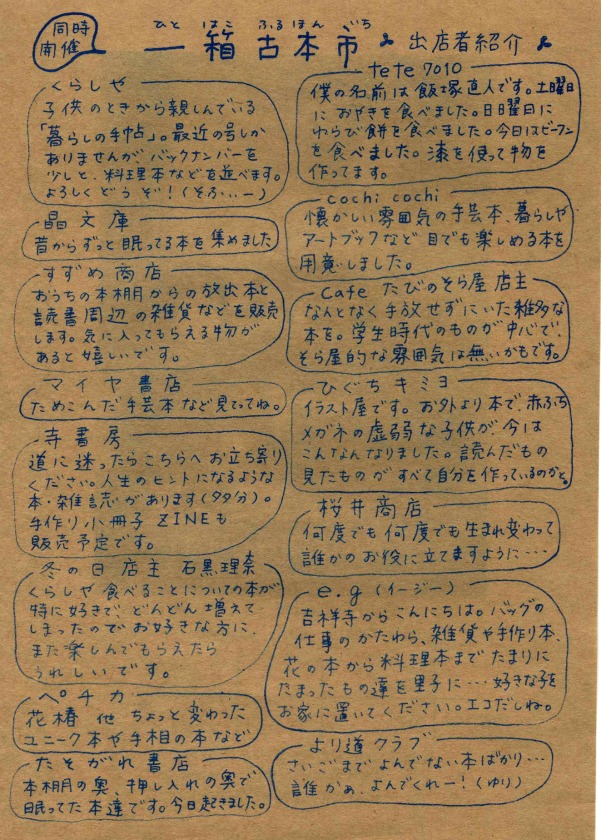 同時
開催
ひと はこ ふるほん いち
一箱古本市 出店者紹介
くらしや
子供のときから親しんでいる
「暮らしの手帖」。最近の号しか
ありませんがバックナンバーを
少しと、料理本などを並べます。
よろしくどうぞ!(そふ…ー)
晶文庫
昔からずっと眠ってる本を集めました
すずめ商店
おうちの本棚からの放出本と
読書周辺の雑貨などを販売
します。気に入ってもらえる物が
あると嬉しいです。
マイヤ書店
ためこんだ手芸本など見てってね。
寺書房
道に迷ったらこちらへお立ち寄り
ください。人生のヒントになるような
本・雑誌があります(タタ分)。
手作り小冊子 ZINEも
販売予定です。
冬の日 店主 石黒理奈
くらしや食べることについての本が
特に好きで、どんどん増えて
しまったのでお好きな方に、
また楽しんでもらえたら
うれしいです。
ペチカ
花椿 他 ちょっと変わった
ユニーク本や手相の本など
たそがれ書店
本棚の奥、押し入れの奥で
眠ってた本達です。今日起きました。
tete 7010
僕の名前は飯塚直人です。土曜日
におやきを食べました。日曜日に
わらび餅を食べました。今日はビーフン
を食べました。漆を使って物を
作ってます。
cochi cochi
懐かしい雰囲気の手芸本、暮らしや
アートブックなど目でも楽しめる本を
用意しました。
cafe たびのそら屋 店主
なんとなく手放せずにいた雑多な
本を。学生時代のものが中心で、
そら屋的な雰囲気は無いかもです。
ひぐちキミヨ
イラスト屋です。お外より本で、赤ふち
メガネの虚弱な子供が、今は
こんなんなりました。読んだもの
見たものがすべて自分を作っているのかと。
桜井商店
何度でも何度でも生まれ変わって
誰かのお役に立てますように…
e.g(イージー)
吉祥寺からこんにちは。バッグの
仕事のかたわら、雑貨や手作り本、
花の本から料理本までたまりに
たまったもの達を里子に…好きな子を
お家に置いてください。エコだしね。
より道クラブ
さいごまでよんでない本ばかり…
誰かぁ、よんでくれー!(ゆり)